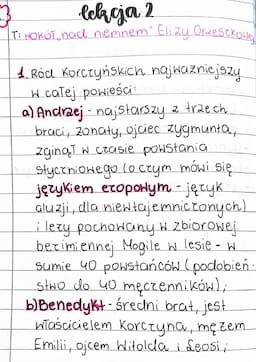 lekcja 2
T: WOKÓŁ „nad niemnem" Elizy Orzeszkowej
1. Ród Korczyńskich najważniejszy
w całej powieści:
a) Andrzej - najstarszy z trzech
braci, żonaty, ojciec Zygmunta,
zginął w czasie powstania
styczniowego (o czym mówi się
językiem ezopowym - język
aluzji, dla niewtajemniczonych)
i leży pochowany w zbiorowej
bezimiennej Mogile w lesie - w
sumie 40 powstańców (podobień-
stwo do 40 męczenników);
b) Benedykt - średni brat, jest
właścicielem Korczyna, mężem
Emilii, ojcem Witolda i Leosi;